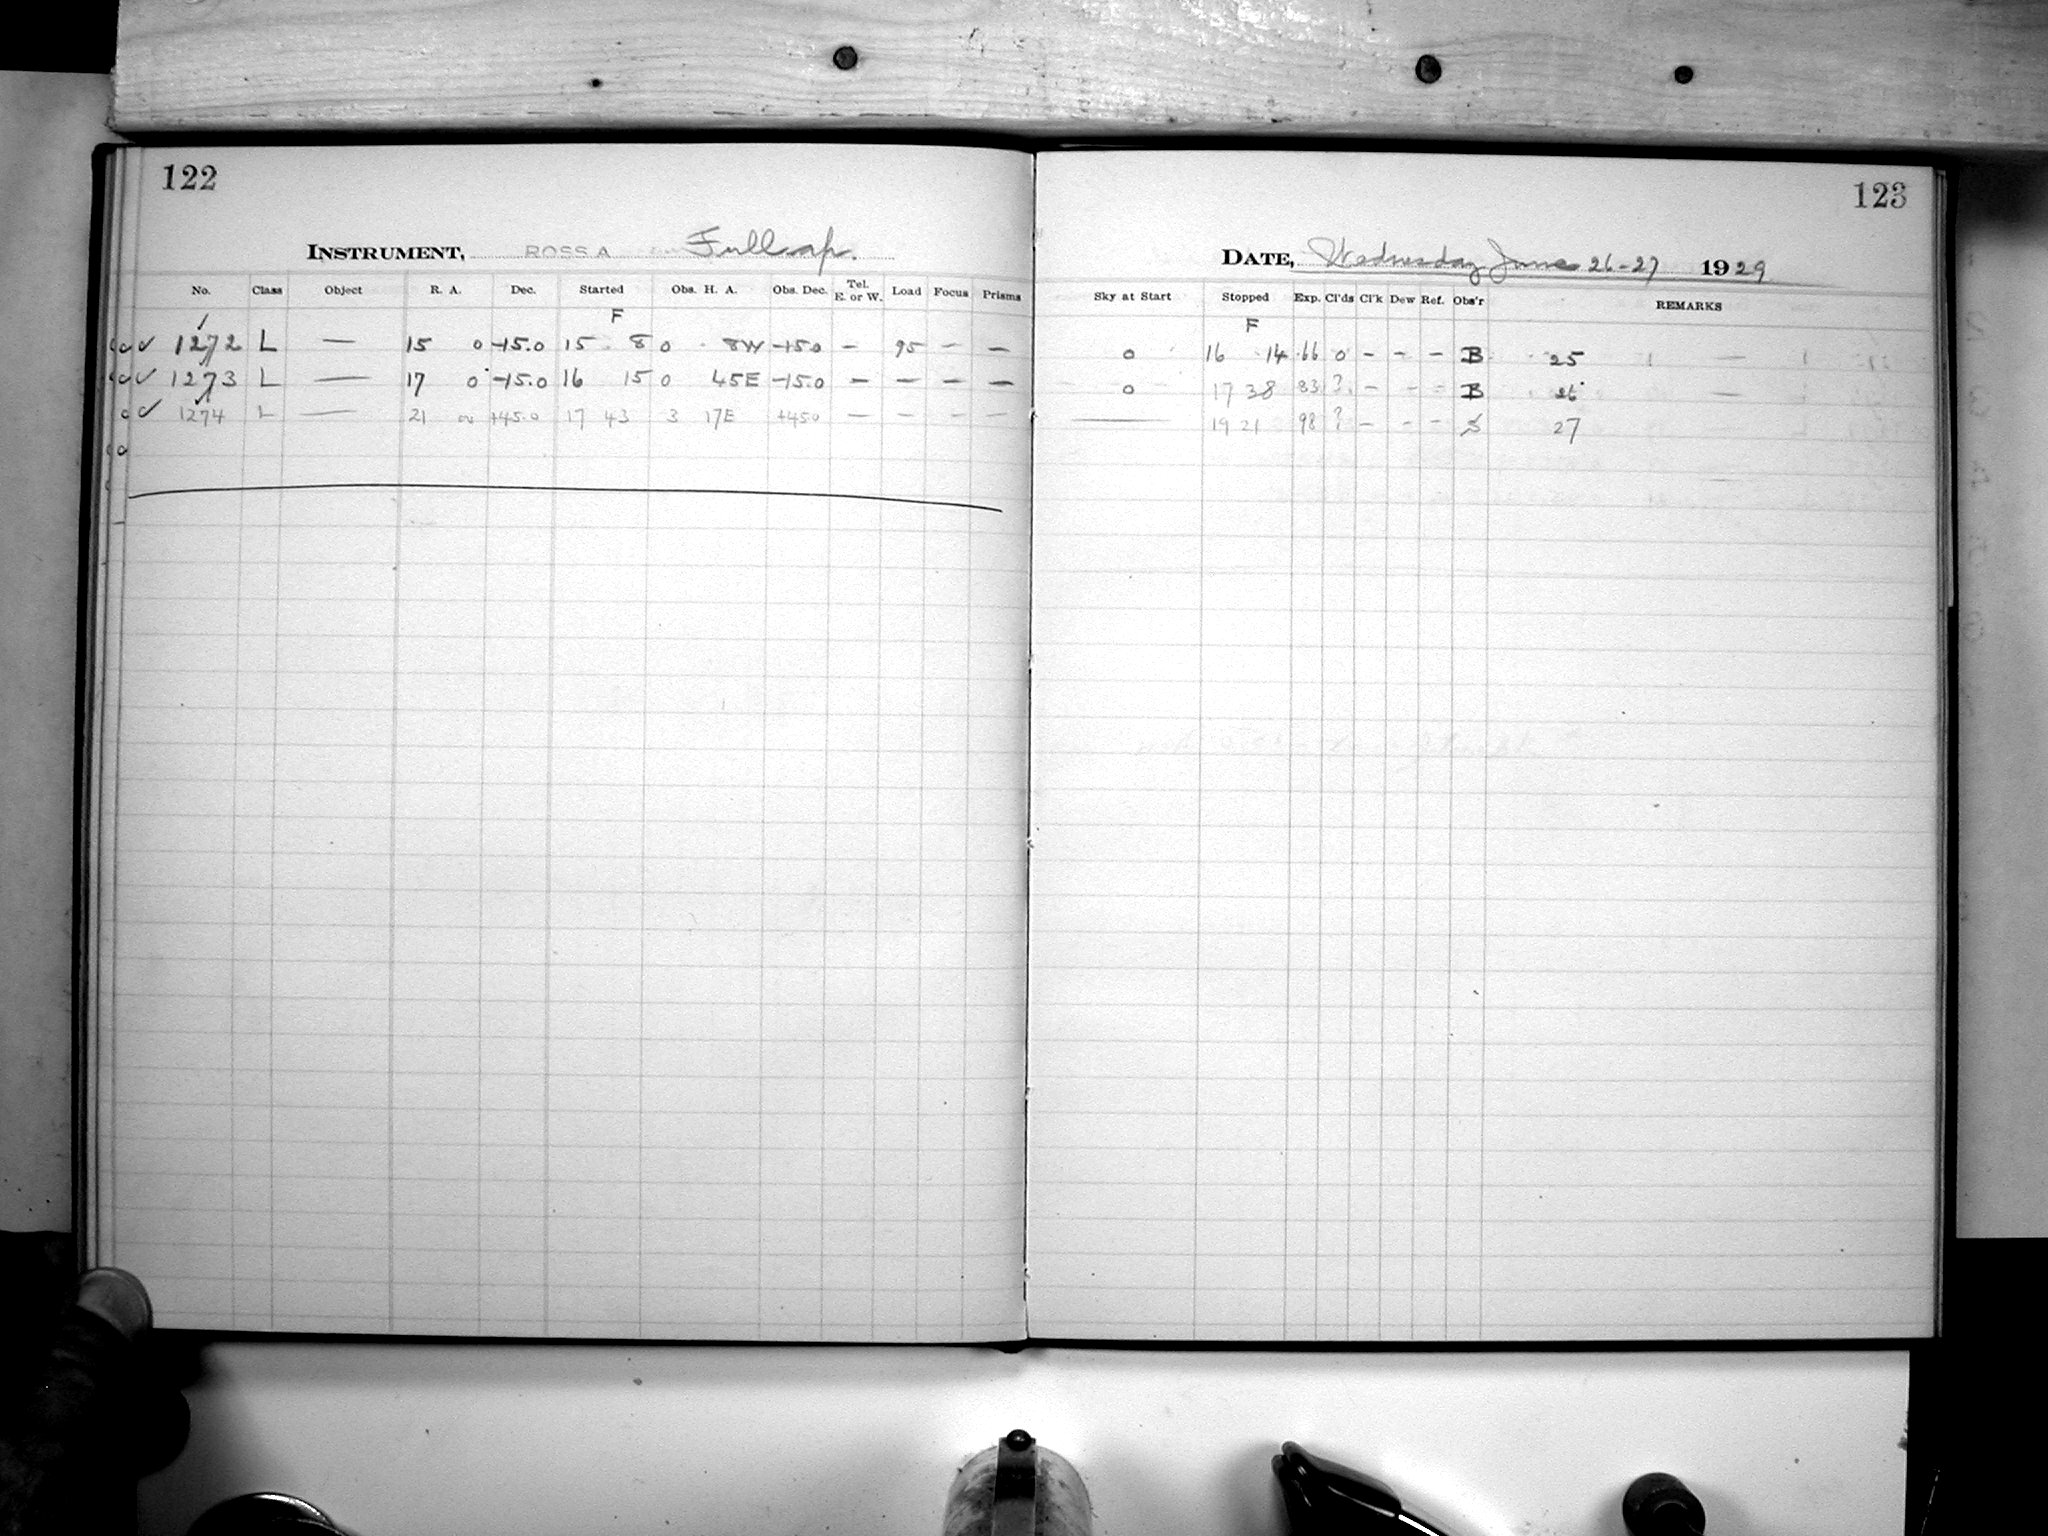 122
INSTRUMENT, ROSS A Full ap.
No. Class Object R. A. Dec. Started Obs. H. A. Obs. Dec. Tel. E. or W. Load Focus Prisms
F
1272 L — 15 0 -15.0 15 8 0 8W -15.0 — 95 — —
1273 L — 17 0 -15.0 16 15 0 45E -15.0 — — — —
1274 L — 21 +45.0 17 43 3 17E +45.0 — — — —
123
DATE, Wednesday June 26-27 1929
Sky at Start Stopped Exp. Cl'ds Cl'k Dew Ref. Obs'r REMARKS
F
0 16 14 66 0 - - - B 25 —
0 17 38 83 ? - - - B 26 —
— 19 21 98 ? - - - 27